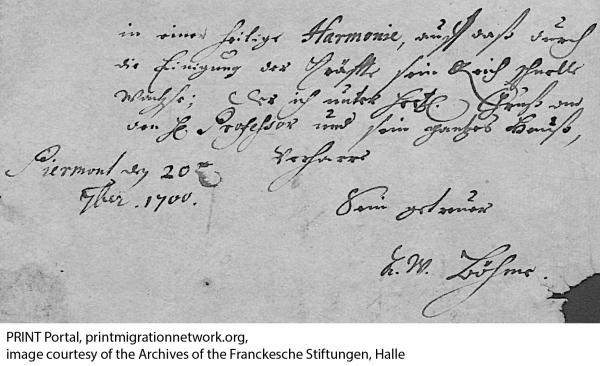 in eine heilige Harmonie, auch daß durch
die Einigung der Kräffte sein Reich schnelle
Wachse; Der ich unter hertzl. Gruß an
den H. Professor und sein gantzes Hauß,
Verharre
Piermont den 20
7ber. 1700.
Sein getreuer
A. W. Böhme.
PRINT Portal, printmigrationnetwork.org,
image courtesy of the Archives of the Franckesche Stiftungen, Halle